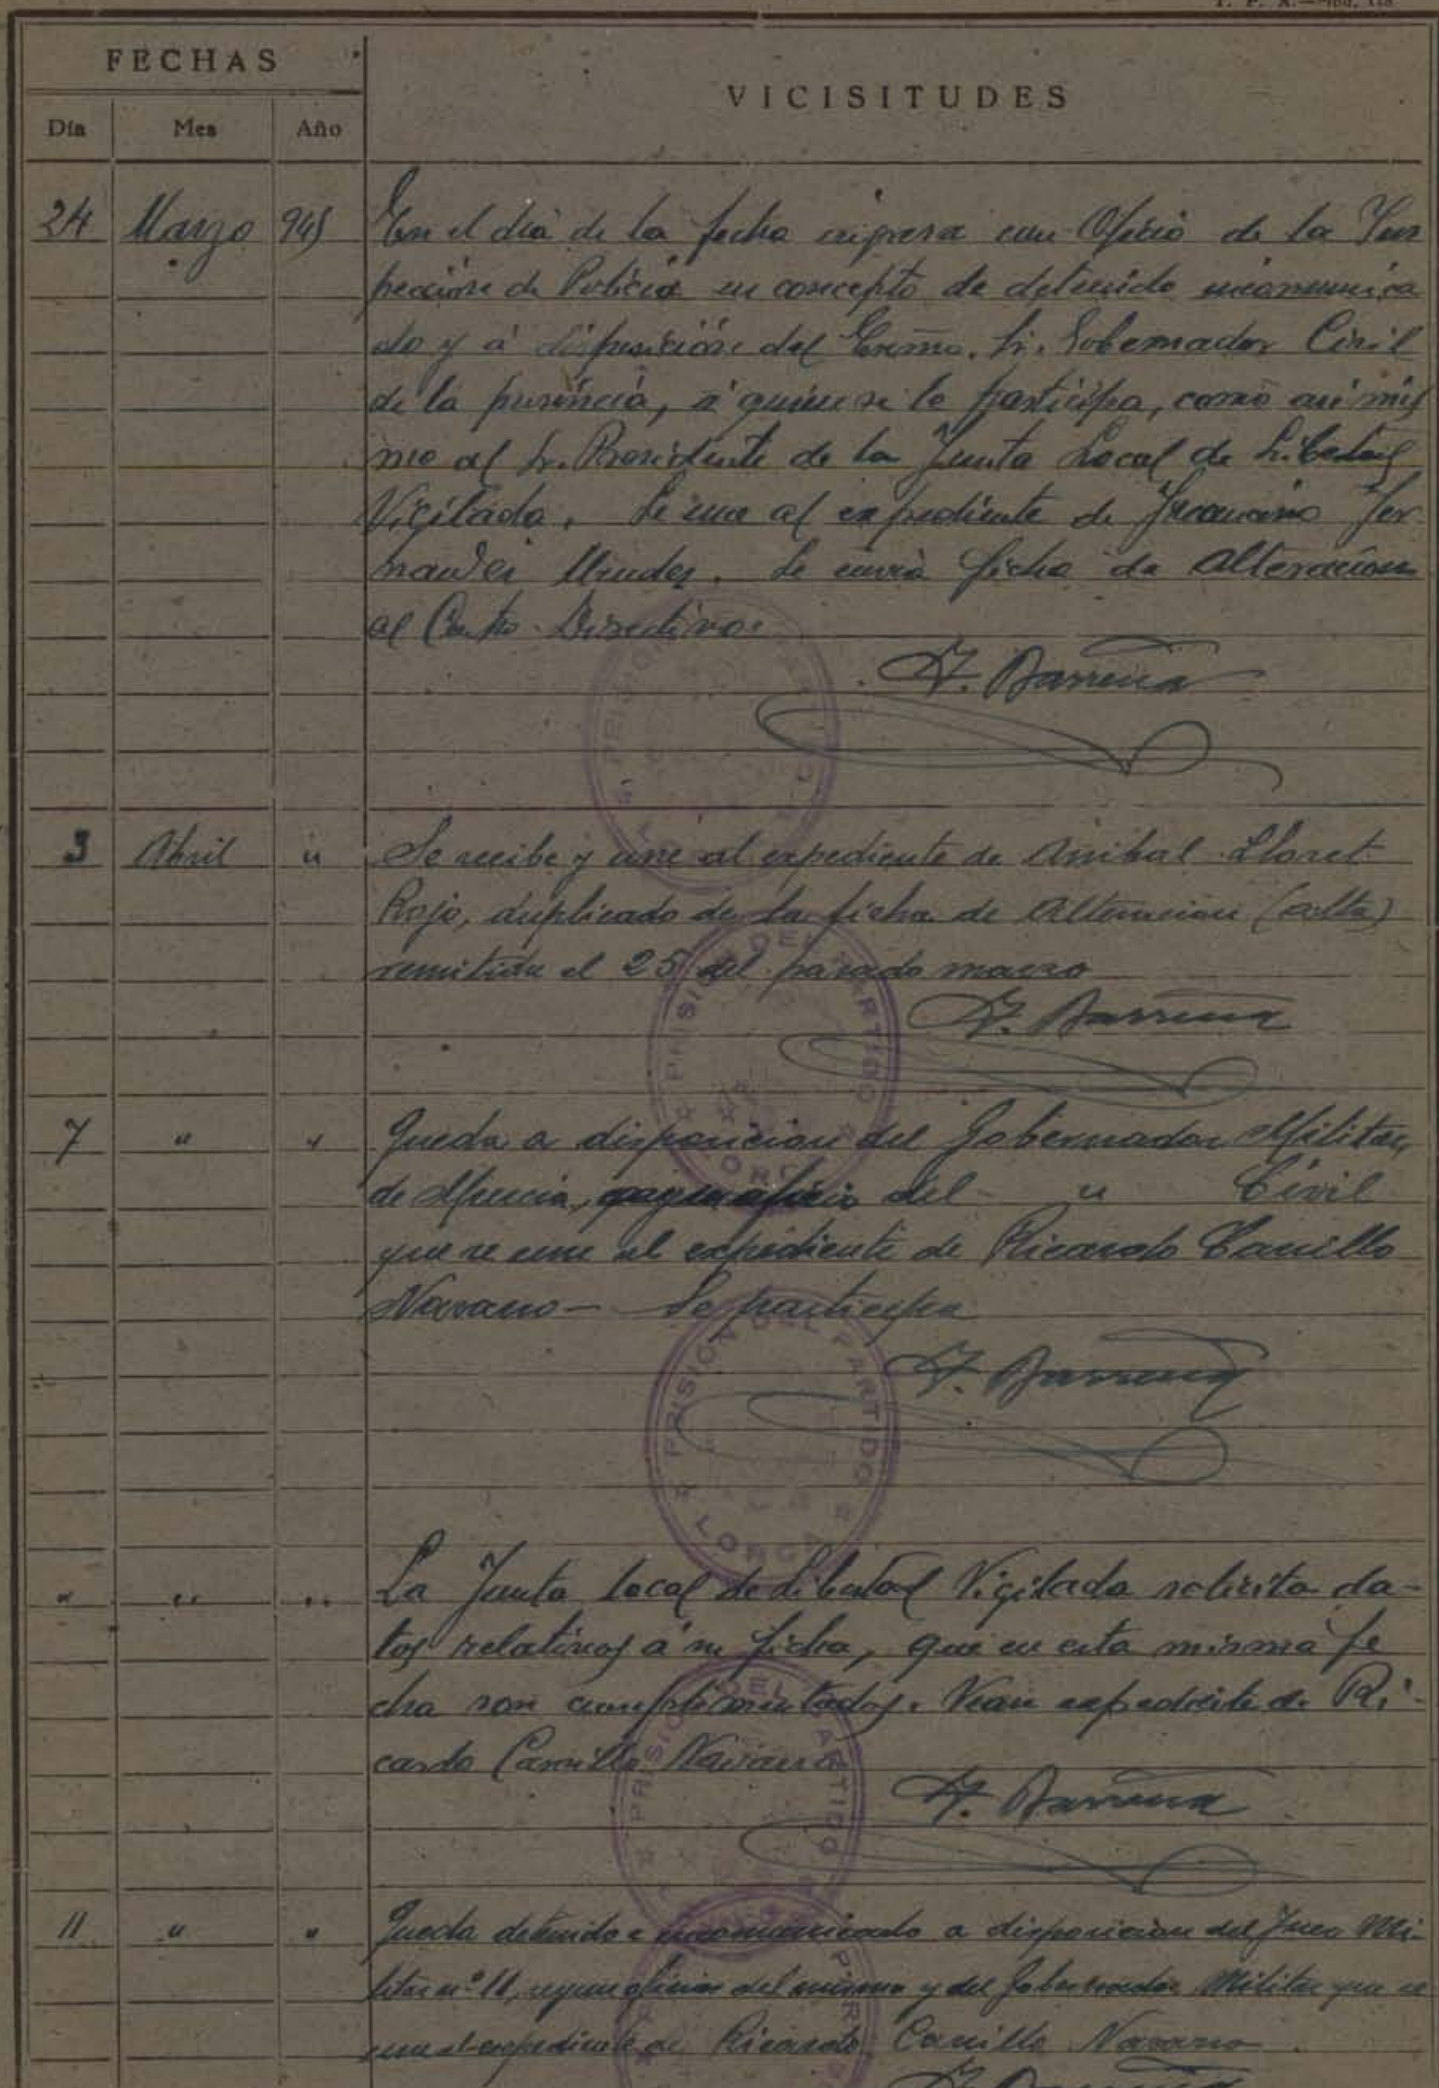 FECHAS
VICISITUDES
Día Mes Año
24 Marzo 945 En el dia de la fecha ingresa con Oficio de la Ins
peccion de Policia en concepto de detenido incomunica
do y a disposición del Excmo. Sr. Gobernador Civil
de la provincia, a quien se le participa, como asi mis
mo al Sr. Presidente de la Junta Local de Libertad
Vigilada. Se une al expediente de Fer
nandez . Se envia ficha de Alteracion
al Centro Directivo.
F. Barrena
3 Abril " Se recibe y une al expediente de Anibal Lloret
Rojo, duplicado de la ficha de Alteracion (alta)
remitida el 25 del pasado marzo
F. Barrena
PRISION DEL PARTIDO
LORCA
7 " " Queda a disposicion del Gobernador Militar
de Murcia, oficio del " Civil
que se une al expediente de Ricardo Carrillo
Navarro - Se participa
F. Barrena
PRISION DEL PARTIDO
LORCA
" " " La Junta Local de Libertad Vigilada solicita da-
tos relativos a su ficha, que en esta misma fe
cha son cumplimentados. Vean expediente de Ri-
cardo Carrillo Navarro
F. Barrena
PRISION DEL PARTIDO
11 " " Queda detenido e incomunicado a disposicion del Juez Mi-
litar nº 11, segun oficios del mismo y del Gobernador Militar que se
une al expediente de Ricardo Carrillo Navarro
F. Barrena